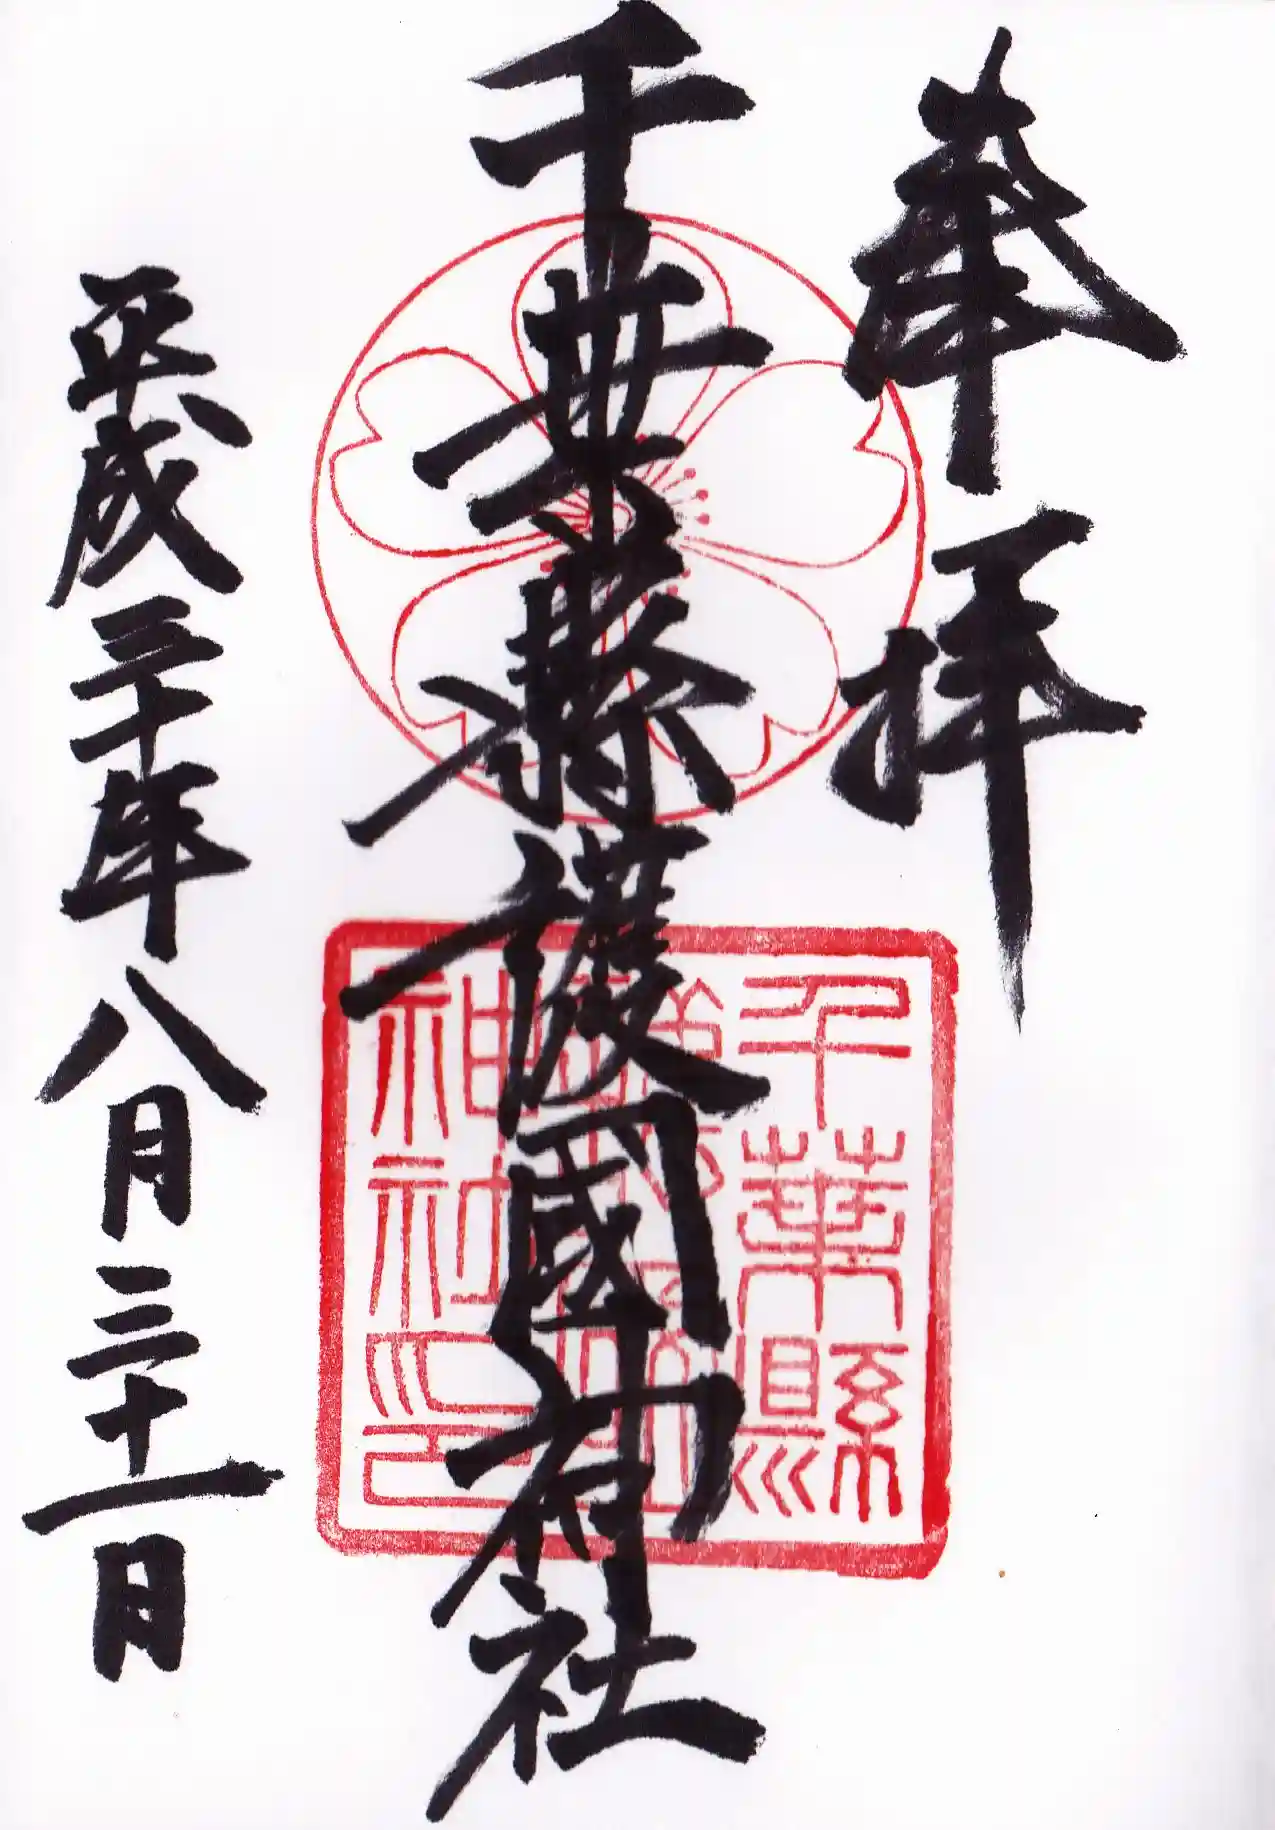 奉拝
千葉縣護國神社
平成三十年八月三十一日
千葉縣
神社印